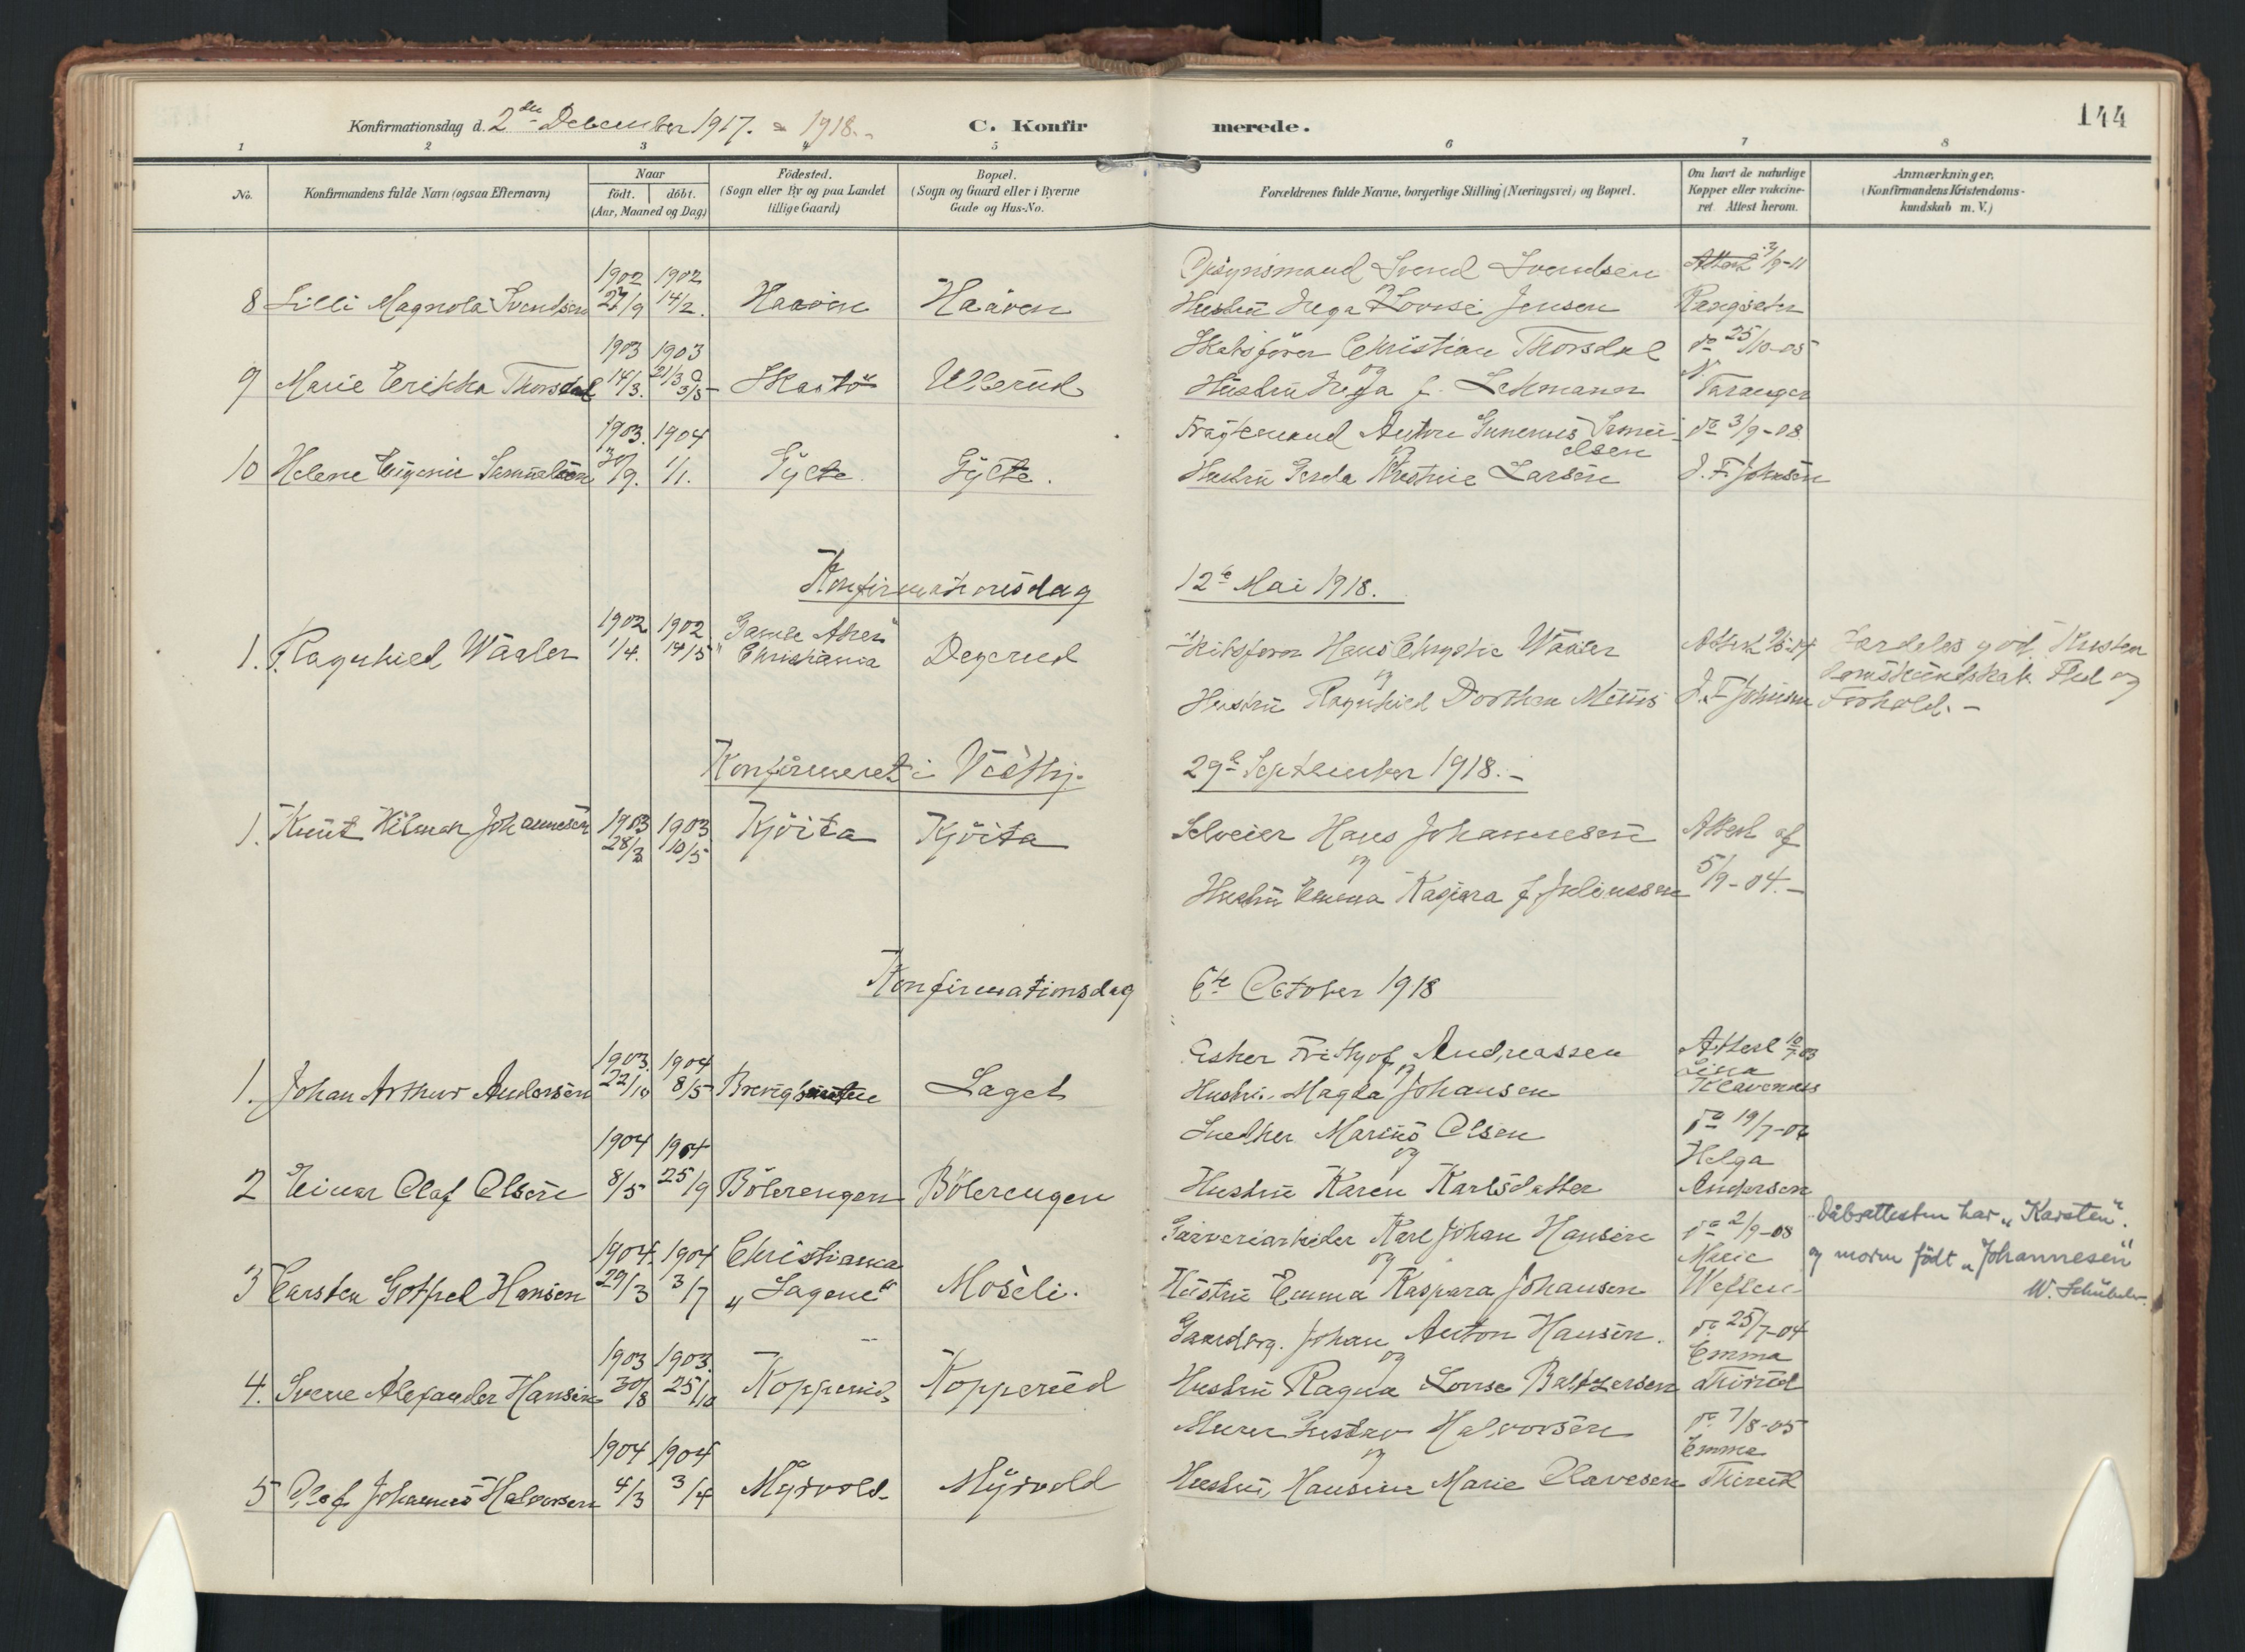 Konfirmationsdag d. 2den December 1917. & 1918.
C. Konfirmerede.
144
1 2 3 4 5 6 7 8
No.
Konfirmandens fulde Navn (ogsaa Efternavn)
Naar
födt. döbt.
(Aar, Maaned og Dag)
Födested.
(Sogn eller By og paa Landet
tillige Gaard)
Bopæl.
(Sogn og Gaard eller i Byerne
Gade og Hus-No.
Forældrenes fulde Navne, borgerlige Stilling (Næringsvei) og Bopæl.
Om havt de naturlige
Kopper eller vakcine-
ret. Attest herom.
Anmærkninger.
(Konfirmandens Kristendoms-
kundskab m. V.)
1902 1902 Opsynsmand Svend Svendsen Attest
8 Lilli Magnola Svendsen 14/2. Haaven Haaven Hustru Lovise Jensen
1903 1903 Christian Thorsdal do 25/10-05
9 Marie Erikka Thorsdal 14/3. 21/3 Skaatö Ullerud og Hustru f. Lehmann Taranger
1903. 1904 Fragtemand Anton Gunerius Samuelsen do 3/9-08
10 Helene Eugenie Samuelsen 30/9. 1/1. Gylte. Gylte. og Hustru Gerda Larsen J. F. Johnsen
Konfirmationsdag 12te Mai 1918.
1902 1902 "Gamle Aker"
1. Ragnhild Waaler 1/4. 14/5 Christiania Degerud Hans Waaler Attest Særdeles god Kristen
og Hustru Ragnhild Dorthea J. F. Johnsen domskundskab Flid og
Forhold.-
Konfirmeret i 29de September 1918.-
1. Knut Hilmar Johannesen 1903 1903 Kjöita Kjöita Selveier Hans Johannesen Attest af
28/3 10/5
og Hustru Emma f. Juliussen 5/9-04.-
Konfirmationsdag 6te October 1918
1903. 1904 Frithjof Andreassen Attest
1. Johan Arthur Andersen 22/10 8/5 Laget og Hustru Magda Johansen Lina Klavenæs
1904 1904 Snedker Olsen do 19/7-06
2 Einar Olaf Olsen 8/5 25/9 Bölerengen Bölerengen og Hustru Karen Karlsdatter Helga Andersen
1904. 1904 Christiania Garveriarbeider Karl Johan Hansen do 2/9-08 Dåbsattesten har „Karsten".
3 Carsten Gotfred Hansen 29/3 3/7 „Sagene" Moseli. og Hustru Emma Kaspara Johansen Marie og moren födt „Johannesen"
W. Schübeler.
1903 1903. Johan Anton Hansen. do 25/7-04
4. Sverre Alexander Hansen 30/8 25/10 Kopperud Kopperud og Hustru Ragna Lovise Baltzersen Emma Thirud
1904 1904 Murer Gustav Halvorsen do 7/8-05
5 Olof Johannes Halvorsen 4/3 3/4 Myrvold. Myrvold og Hustru, Hansine Marie Olavesen Emma Thirud